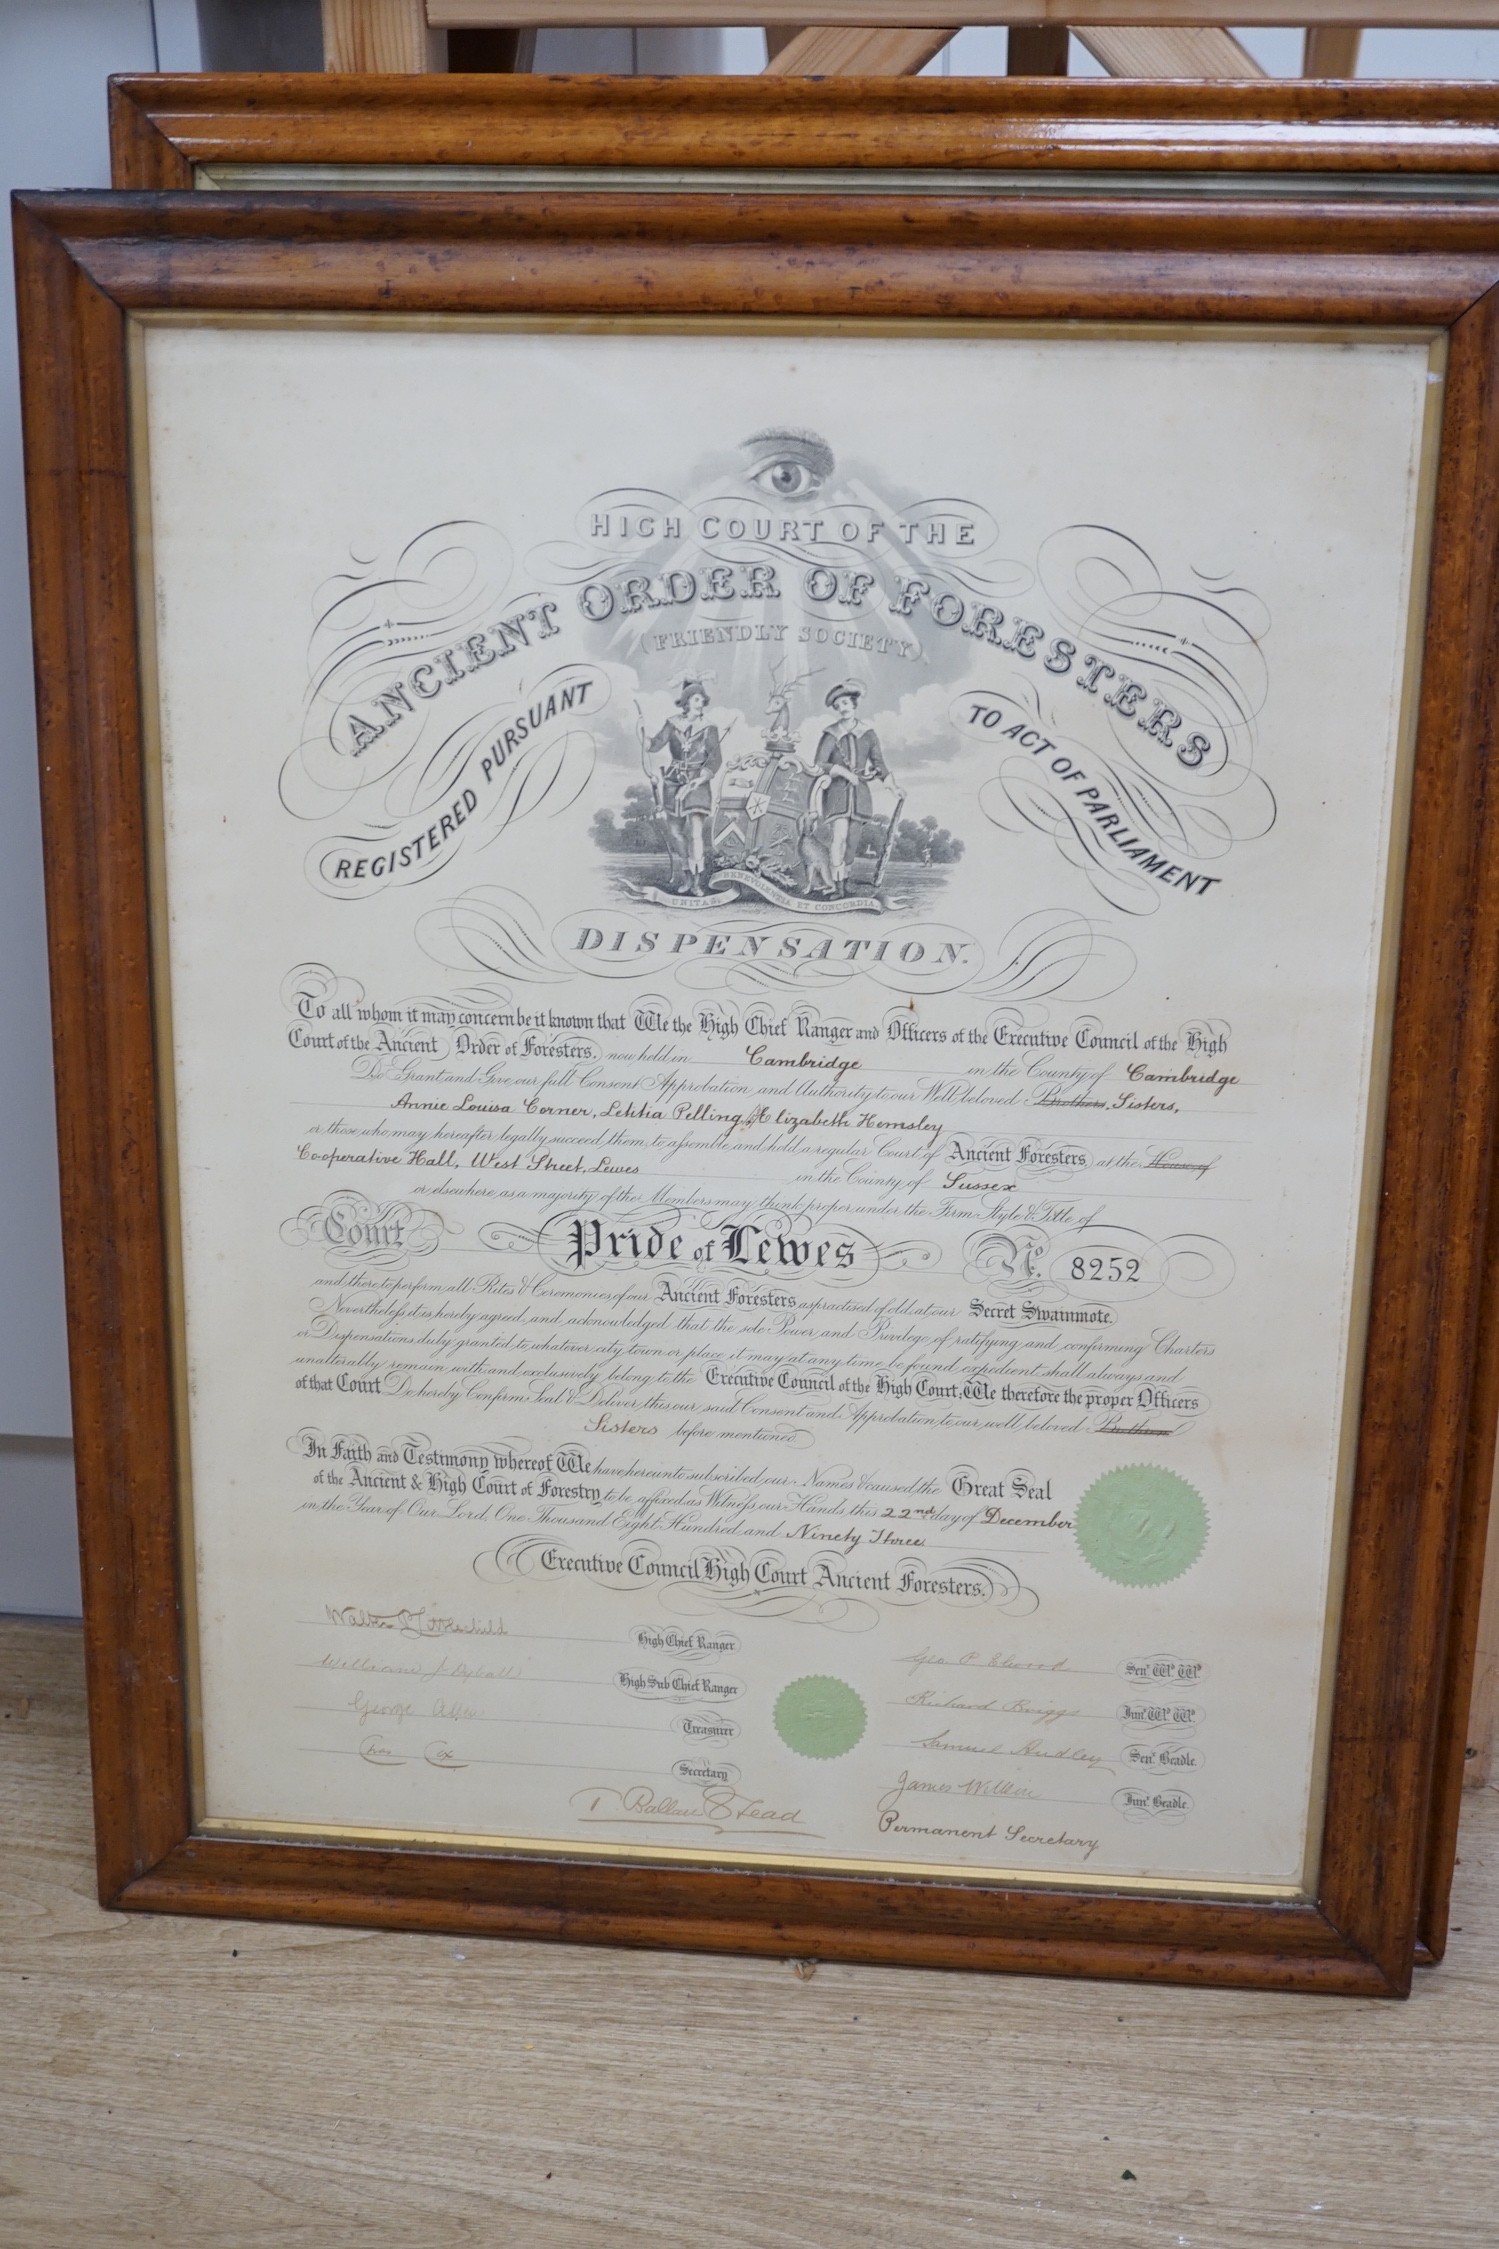 HIGH COURT OF THE
ANCIENT ORDER OF FORESTERS
(FRIENDLY SOCIETY)
REGISTERED PURSUANT
TO ACT OF PARLIAMENT
UNITAS, BENEVOLENTIA ET CONCORDIA.
DISPENSATION.
To all whom it may concern be it known that We the High Chief Ranger and Officers of the Executive Council of the High
Court of the Ancient Order of Foresters, now held in Cambridge in the County of Cambridge
Do Grant and Give our full Consent Approbation and Authority to our Well beloved Brothers, Sisters,
Annie Louisa Corner, Letitia Pelling, Elizabeth Hemsley
or those who may hereafter legally succeed them, to assemble and hold a regular Court of Ancient Foresters, at the House of
Co-operative Hall, West Street, Lewes in the County of Sussex
or elsewhere as a majority of the Members may think proper under the Firm Style & Title of
Court Pride of Lewes No. 8252
and there to perform all Rites & Ceremonies of our Ancient Foresters as practised of old at our Secret Swainmote.
Nevertheless it is hereby agreed and acknowledged that the sole Power and Privilege of ratifying and confirming Charters
or Dispensations duly granted to whatever city town or place it may at any time be found expedient shall always and
unalterably remain with and exclusively belong to the Executive Council of the High Court; We therefore the proper Officers
of that Court Do hereby Confirm Seal & Deliver this our said Consent and Approbation to our well beloved Brethren
Sisters before mentioned
In Faith and Testimony whereof We have hereunto subscribed our Names & caused the Great Seal
of the Ancient & High Court of Forestry to be affixed as Witness our Hands this 22nd day of December
in the Year of Our Lord One Thousand Eight Hundred and Ninety Three
Executive Council High Court Ancient Foresters.
Walter Littlechild High Chief Ranger
William J Dyball High Sub Chief Ranger
George Allen Treasurer
Secretary
Geo P. Elwood Senr. Wd. Wd.
Richard Briggs Junr. Wd. Wd.
Samuel Hudley Senr. Beadle.
James Wilkin Junr. Beadle.
T. Ballan Stead Permanent Secretary